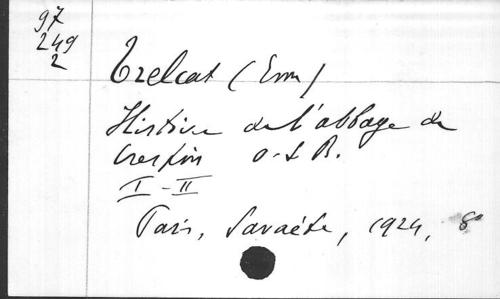 97
249
2
Trelcat (Em)
Histoire de l'abbaye de
Crespin O.S.B.
I-II
Paris, Savaète, 1924, 8°